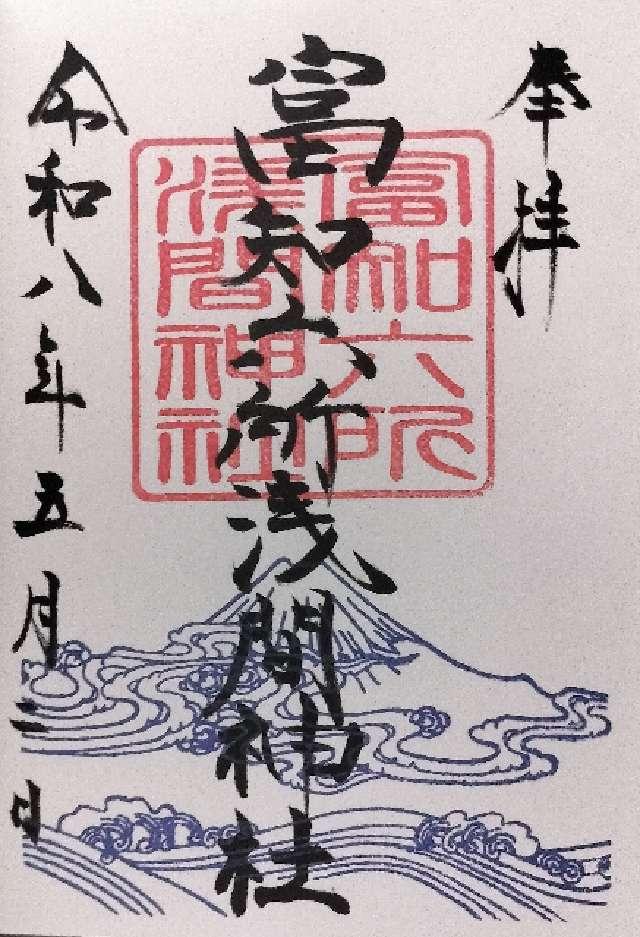 奉拝
富知六所浅間神社
富知六所
浅間神社
令和八年五月二日